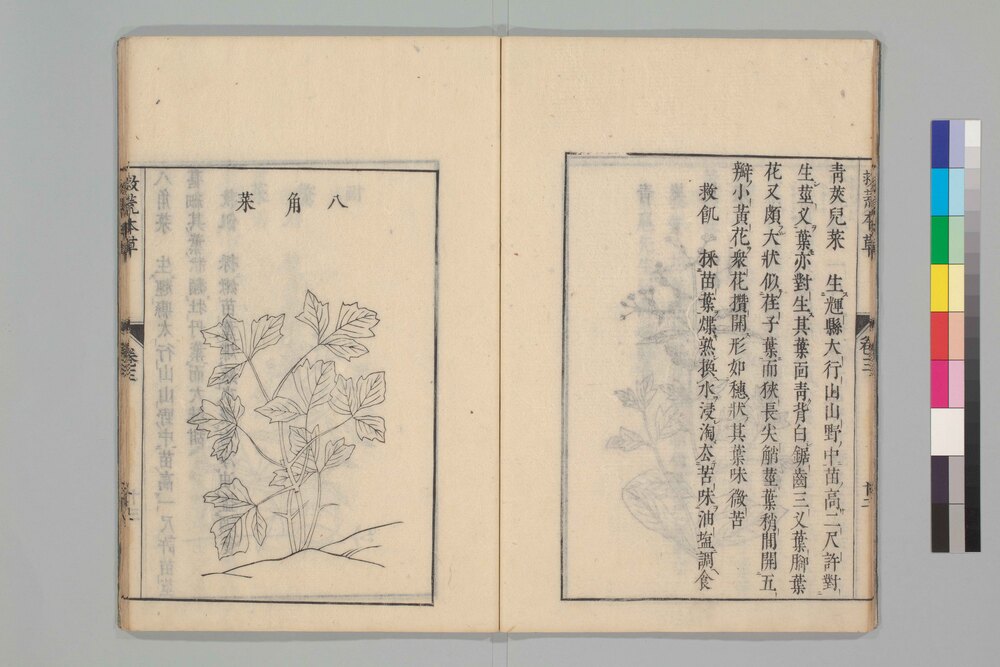 青莢兒菜 生輝縣太行山山野中苗高二尺許對
生莖叉葉亦對生其葉面青背白鋸齒三叉葉腳葉
花叉頗大狀似荏子葉而狹長尖艄莖葉稍間開五
瓣小黃花衆花攢開形如穗狀其葉味微苦
救飢 採苗葉煠熟換水浸淘去苦味油塩調食
救荒本草 卷三
八角菜
救荒本草 卷三